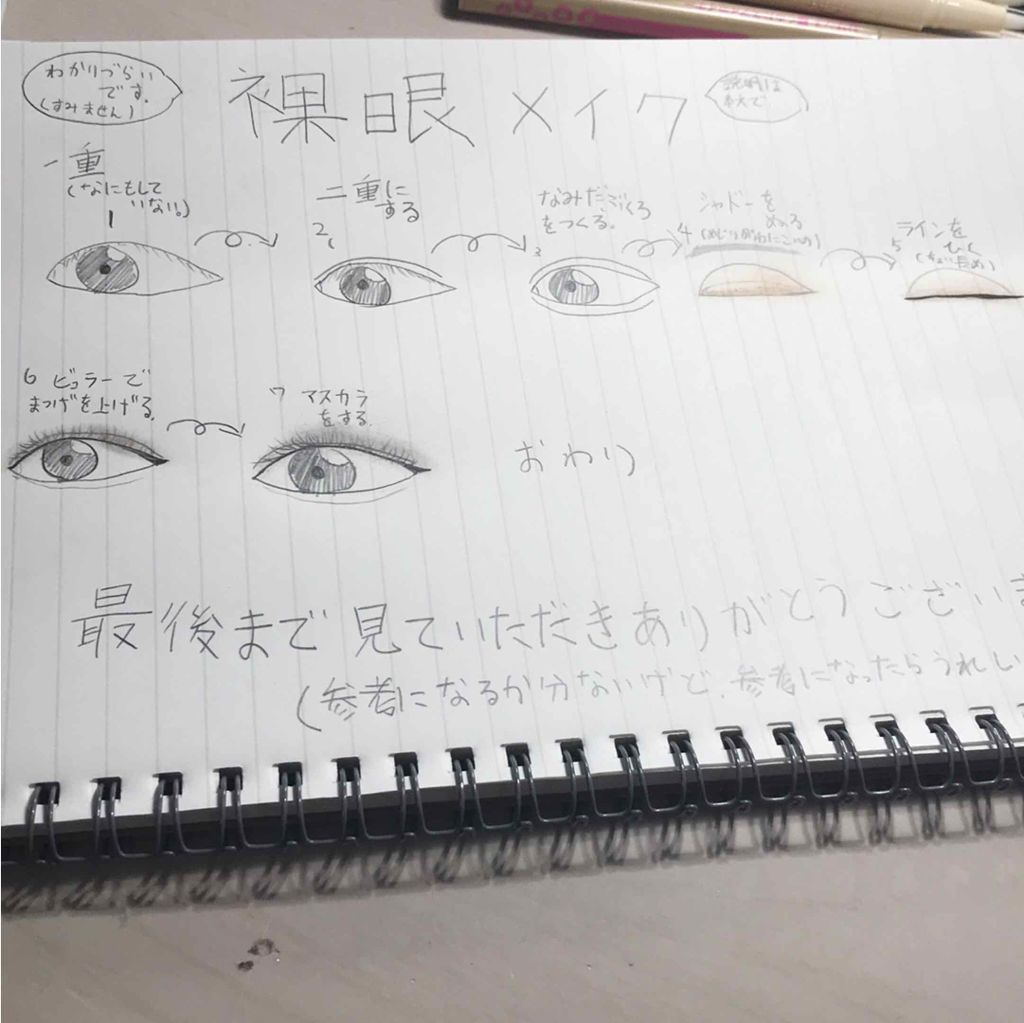 わかりづらい
です。
(すみません)
裸眼メイク
説明は
一重
(なにもして
いない。)
1
二重に
する
2
なみだぶくろ
をつくる。
3
シャドーを
ぬる
4
ラインを
ひく
(ちょい長め)
5
6 ビューラーで
まつげを上げる。
7 マスカラ
をする。
おわり
最後まで見ていただきありがとうございま
(参考になるか分ないけど、参考になったらうれしい